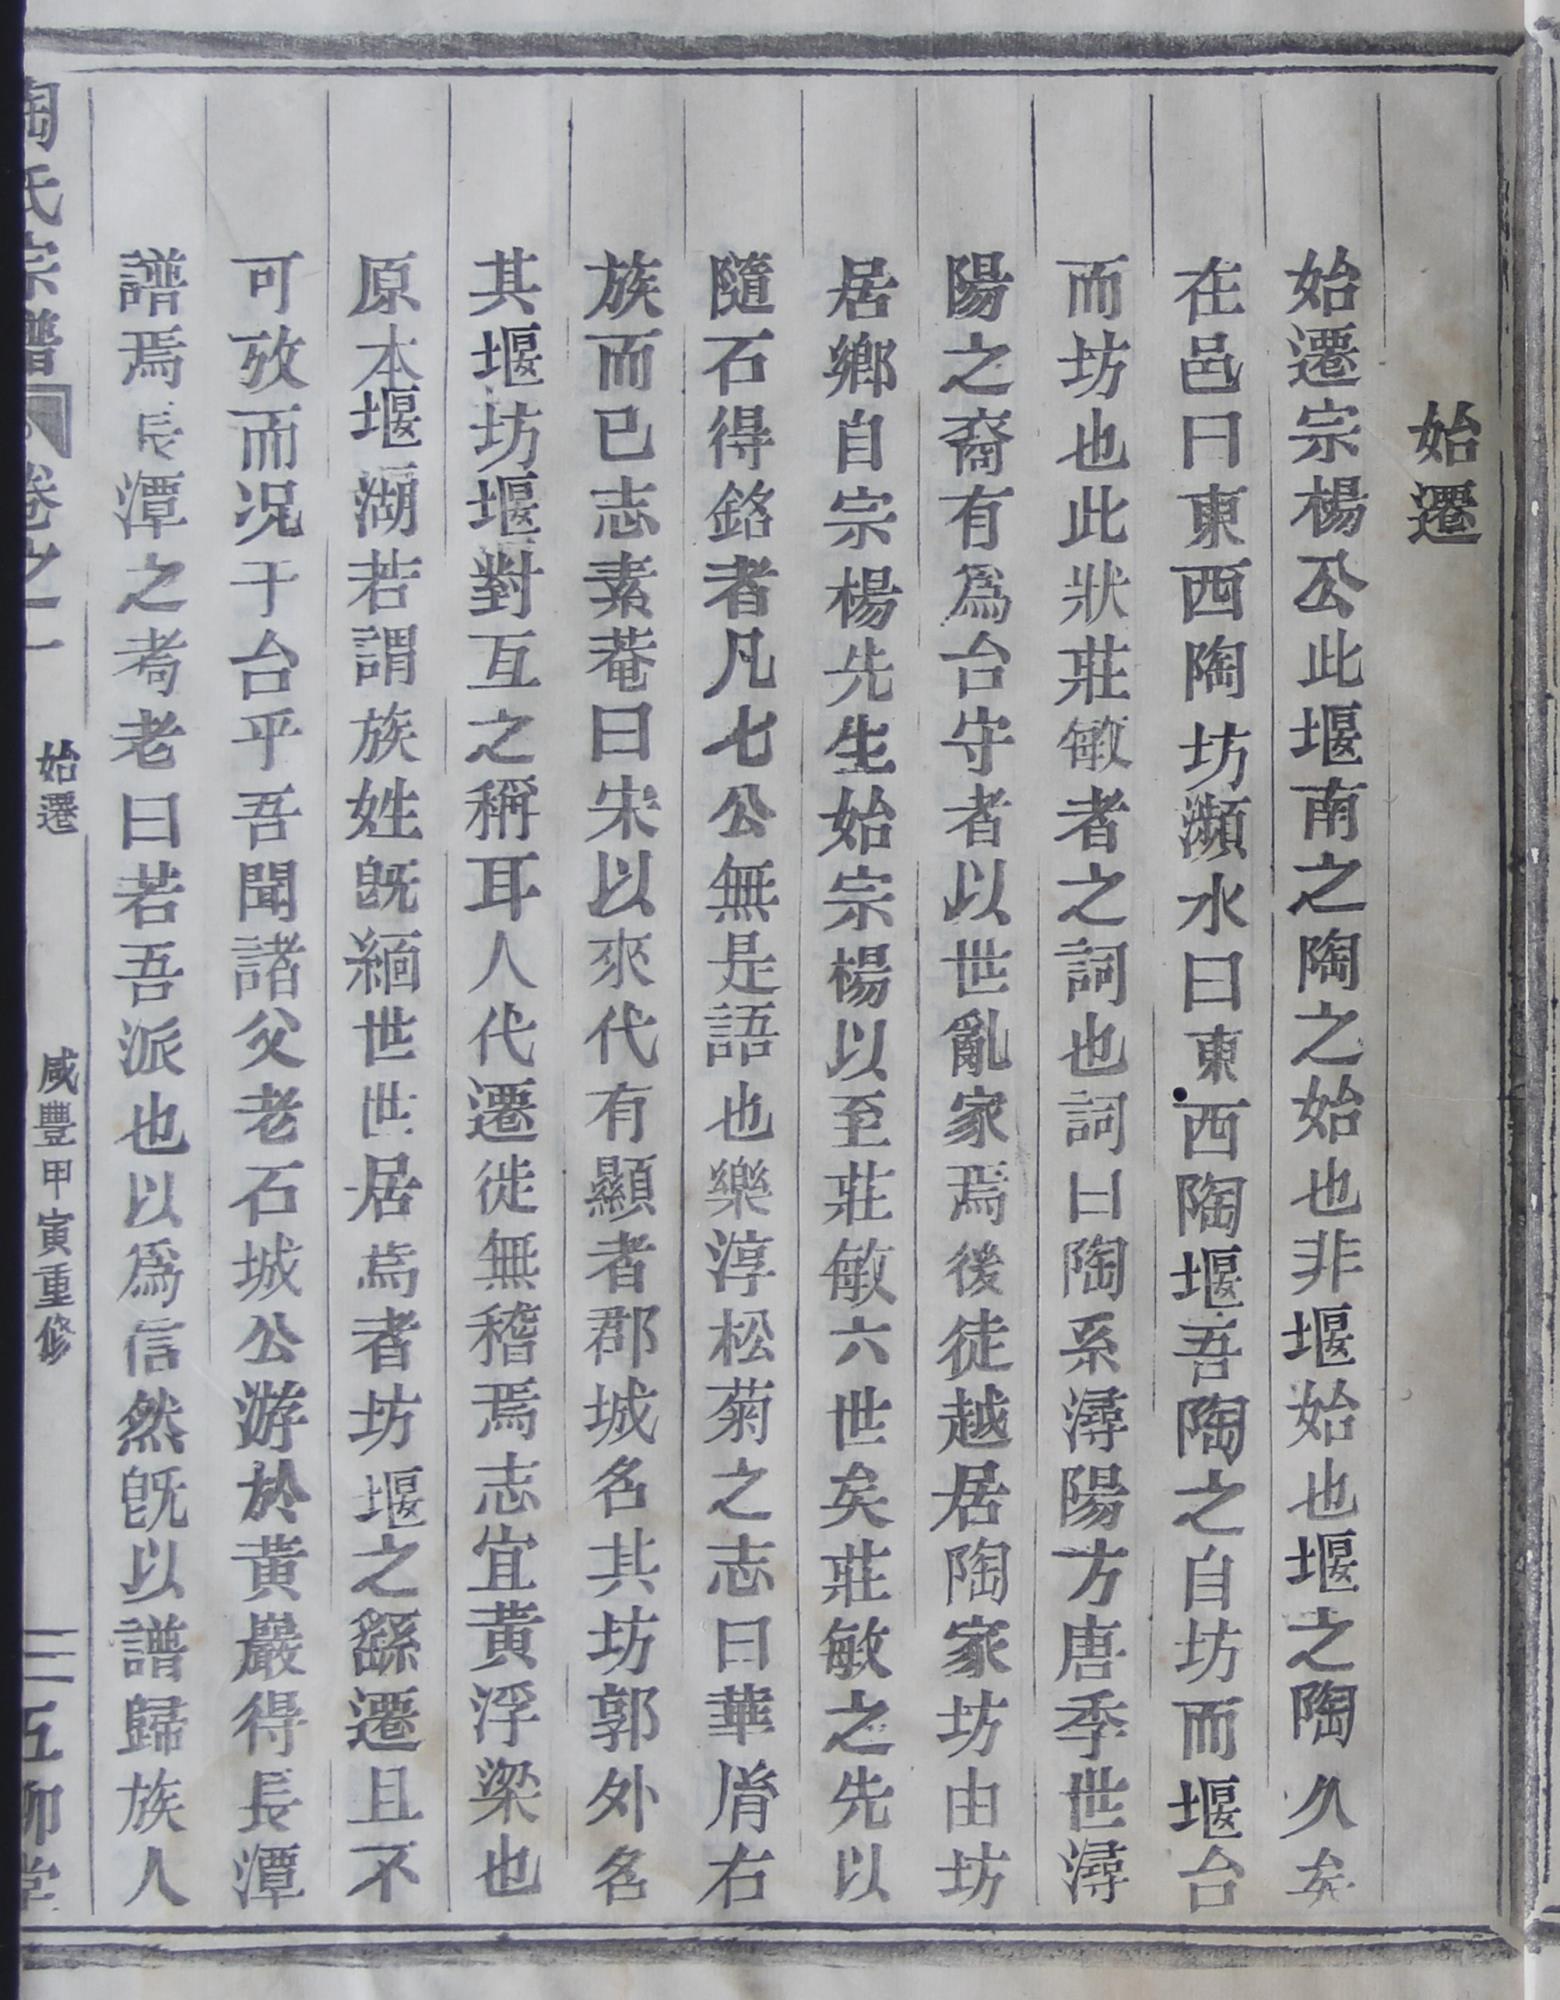 始遷
始遷宗楊公此堰南之陶之始也非堰始也堰之陶久矣
在邑曰東西陶坊瀕水曰東西陶堰吾陶之自坊而堰台
而坊也此狀莊敏者之詞也詞曰陶系潯陽方唐季世潯
陽之裔有爲台守者以世亂家焉後徙越居陶家坊由坊
居鄉自宗楊先生始宗楊以至莊敏六世矣莊敏之先以
隨石得銘者凡七公無是語也樂淳松菊之志曰華胥右
族而已志素菴曰宋以來代有顯者郡城名其坊郭外名
其堰坊堰對互之稱耳人代遷徙無稽焉志宜黃浮梁也
原本堰湖若謂族姓旣緬世世居焉者坊堰之繇遷且不
可攷而况于台乎吾聞諸父老石城公游於黃嚴得長潭
譜焉長潭之耉老曰若吾派也以爲信然旣以譜歸族人
陶氏宗譜 卷之一 始遷 咸豐甲寅重修 三 五柳堂